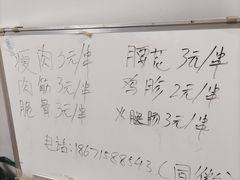 瘦肉3元/串
腰花3元/串
肉筋3元/串
鸡胗2元/串
脆骨3元/串
火腿肠3元/串
电话:18671588543(同微